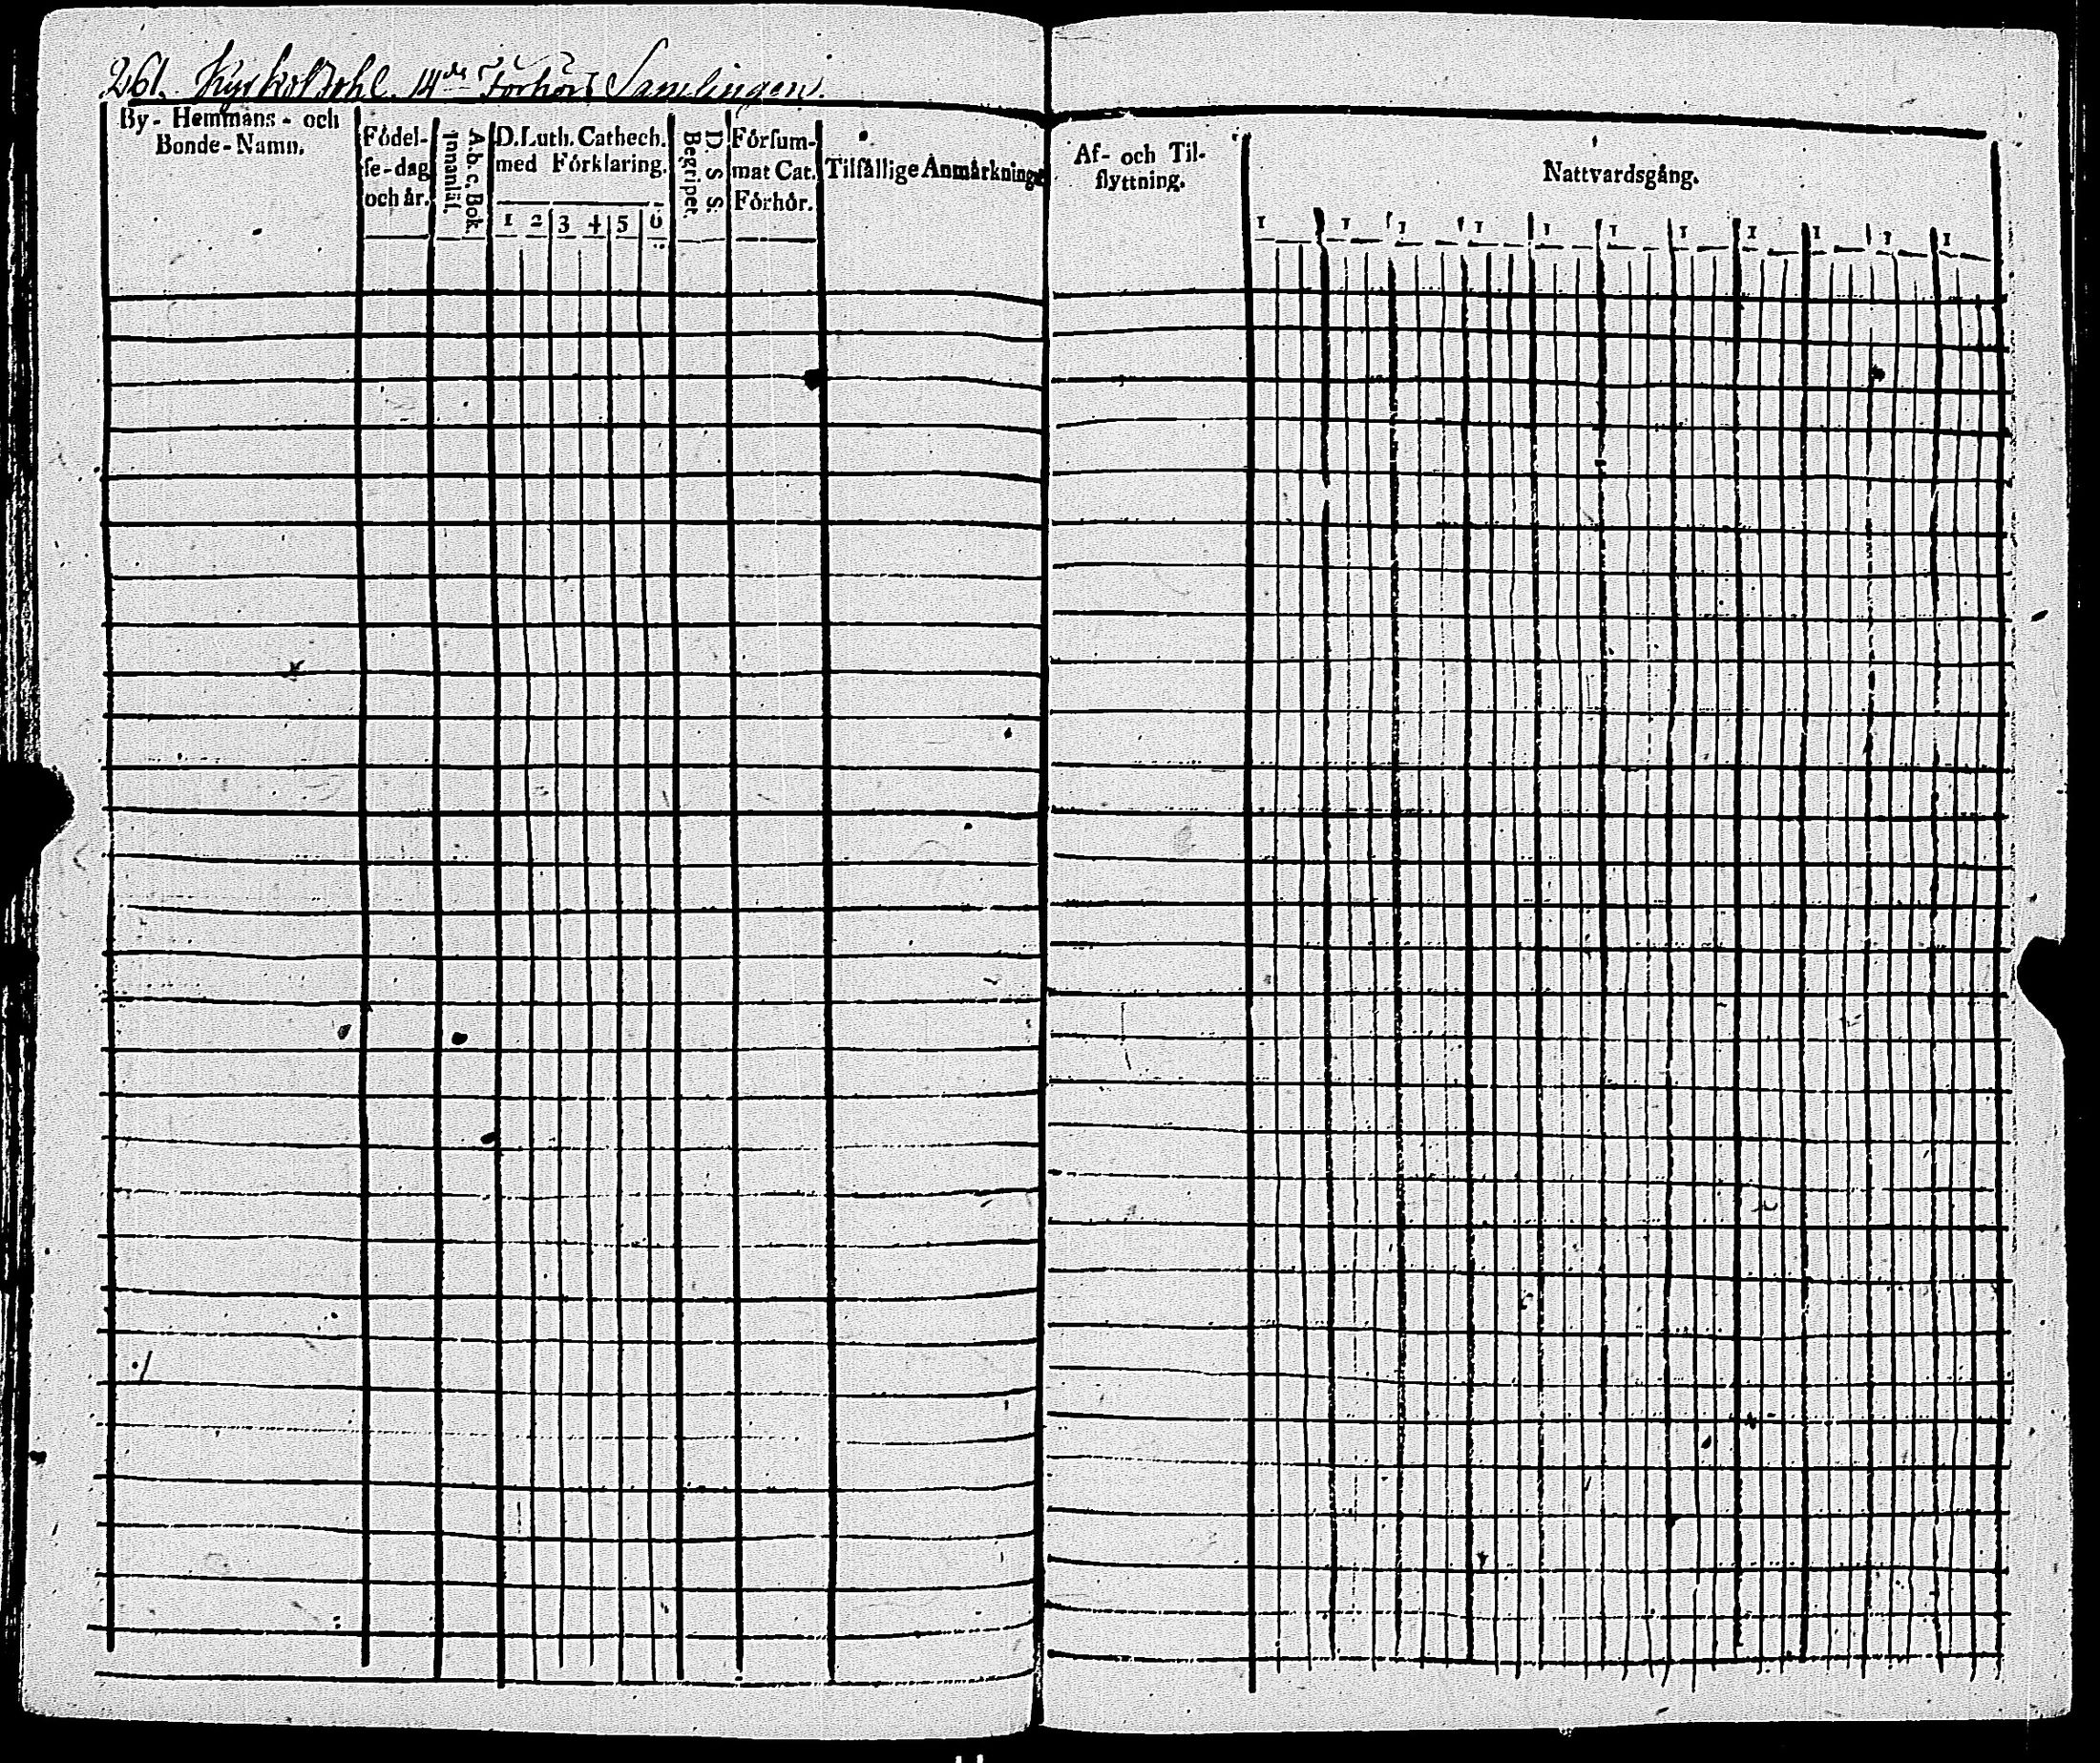 261. Kyrkoldohl. 14de Förhörs Samlingen.
By- Hemmans- och
Bonde-Namn.
Födel-
se-dag
och år.
A.b.c. Bok.
innanläs.
D. Luth. Cathech.
med Förklaring.
1 2 3 4 5 6
D. S. S.
Begripet.
Försum-
mat Cat.
Förhör.
Tilfällige Anmärkningar
Af- och Til-
flyttning.
Nattvardsgång.
1 1 1 1 1 1 1 1 1 1 1